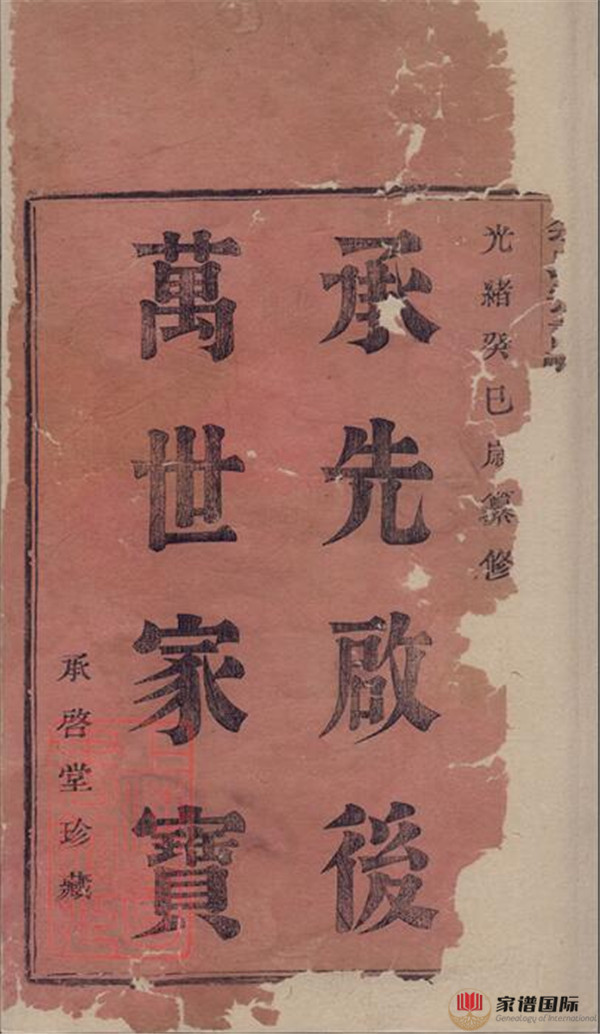 光緒癸巳扇纂修
承先啟後
萬世家寶
承啓堂珍藏
家谱国际
Genealogy of International